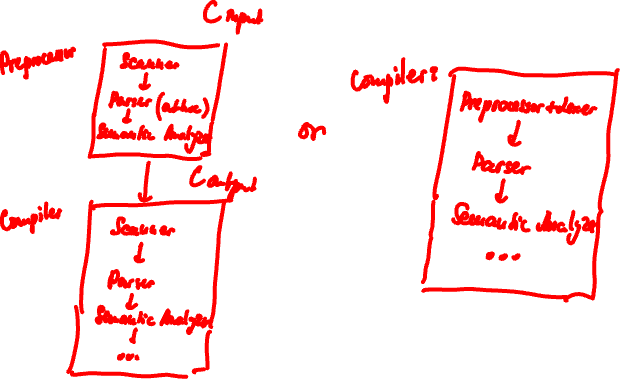 C Input
Preprocessor
Scanner
Parser
Semantic Analyzer
C output
Compiler
Scanner
Parser
Semantic Analyzer
...
or
Compiler:
Preprocessor + Lexer
Parser
Semantic Analyzer
...